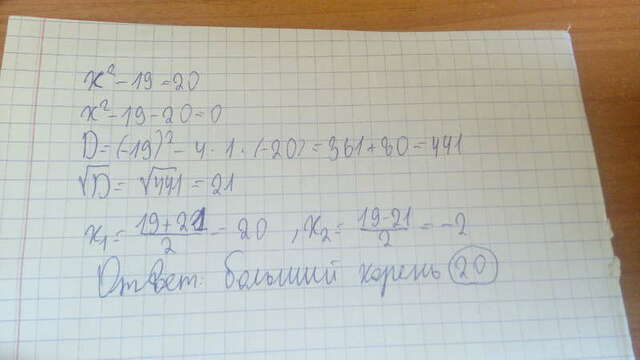 x² - 19 = 20
x² - 19 - 20 = 0
D = (-19)² - 4 · 1 · (-20) = 361 + 80 = 441
√D = √441 = 21
x₁ = (19 + 21)/2 = 20 , x₂ = (19 - 21)/2 = -2
Ответ: больший корень 20